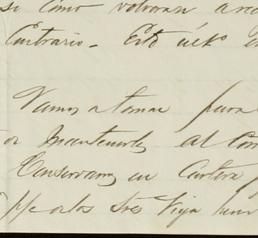 si como volvoran a
Contrario - Esto últo
Vamos a tomar para
or mantenerle al Con
Conservamos en Cartera
ppe a los Sres Vija